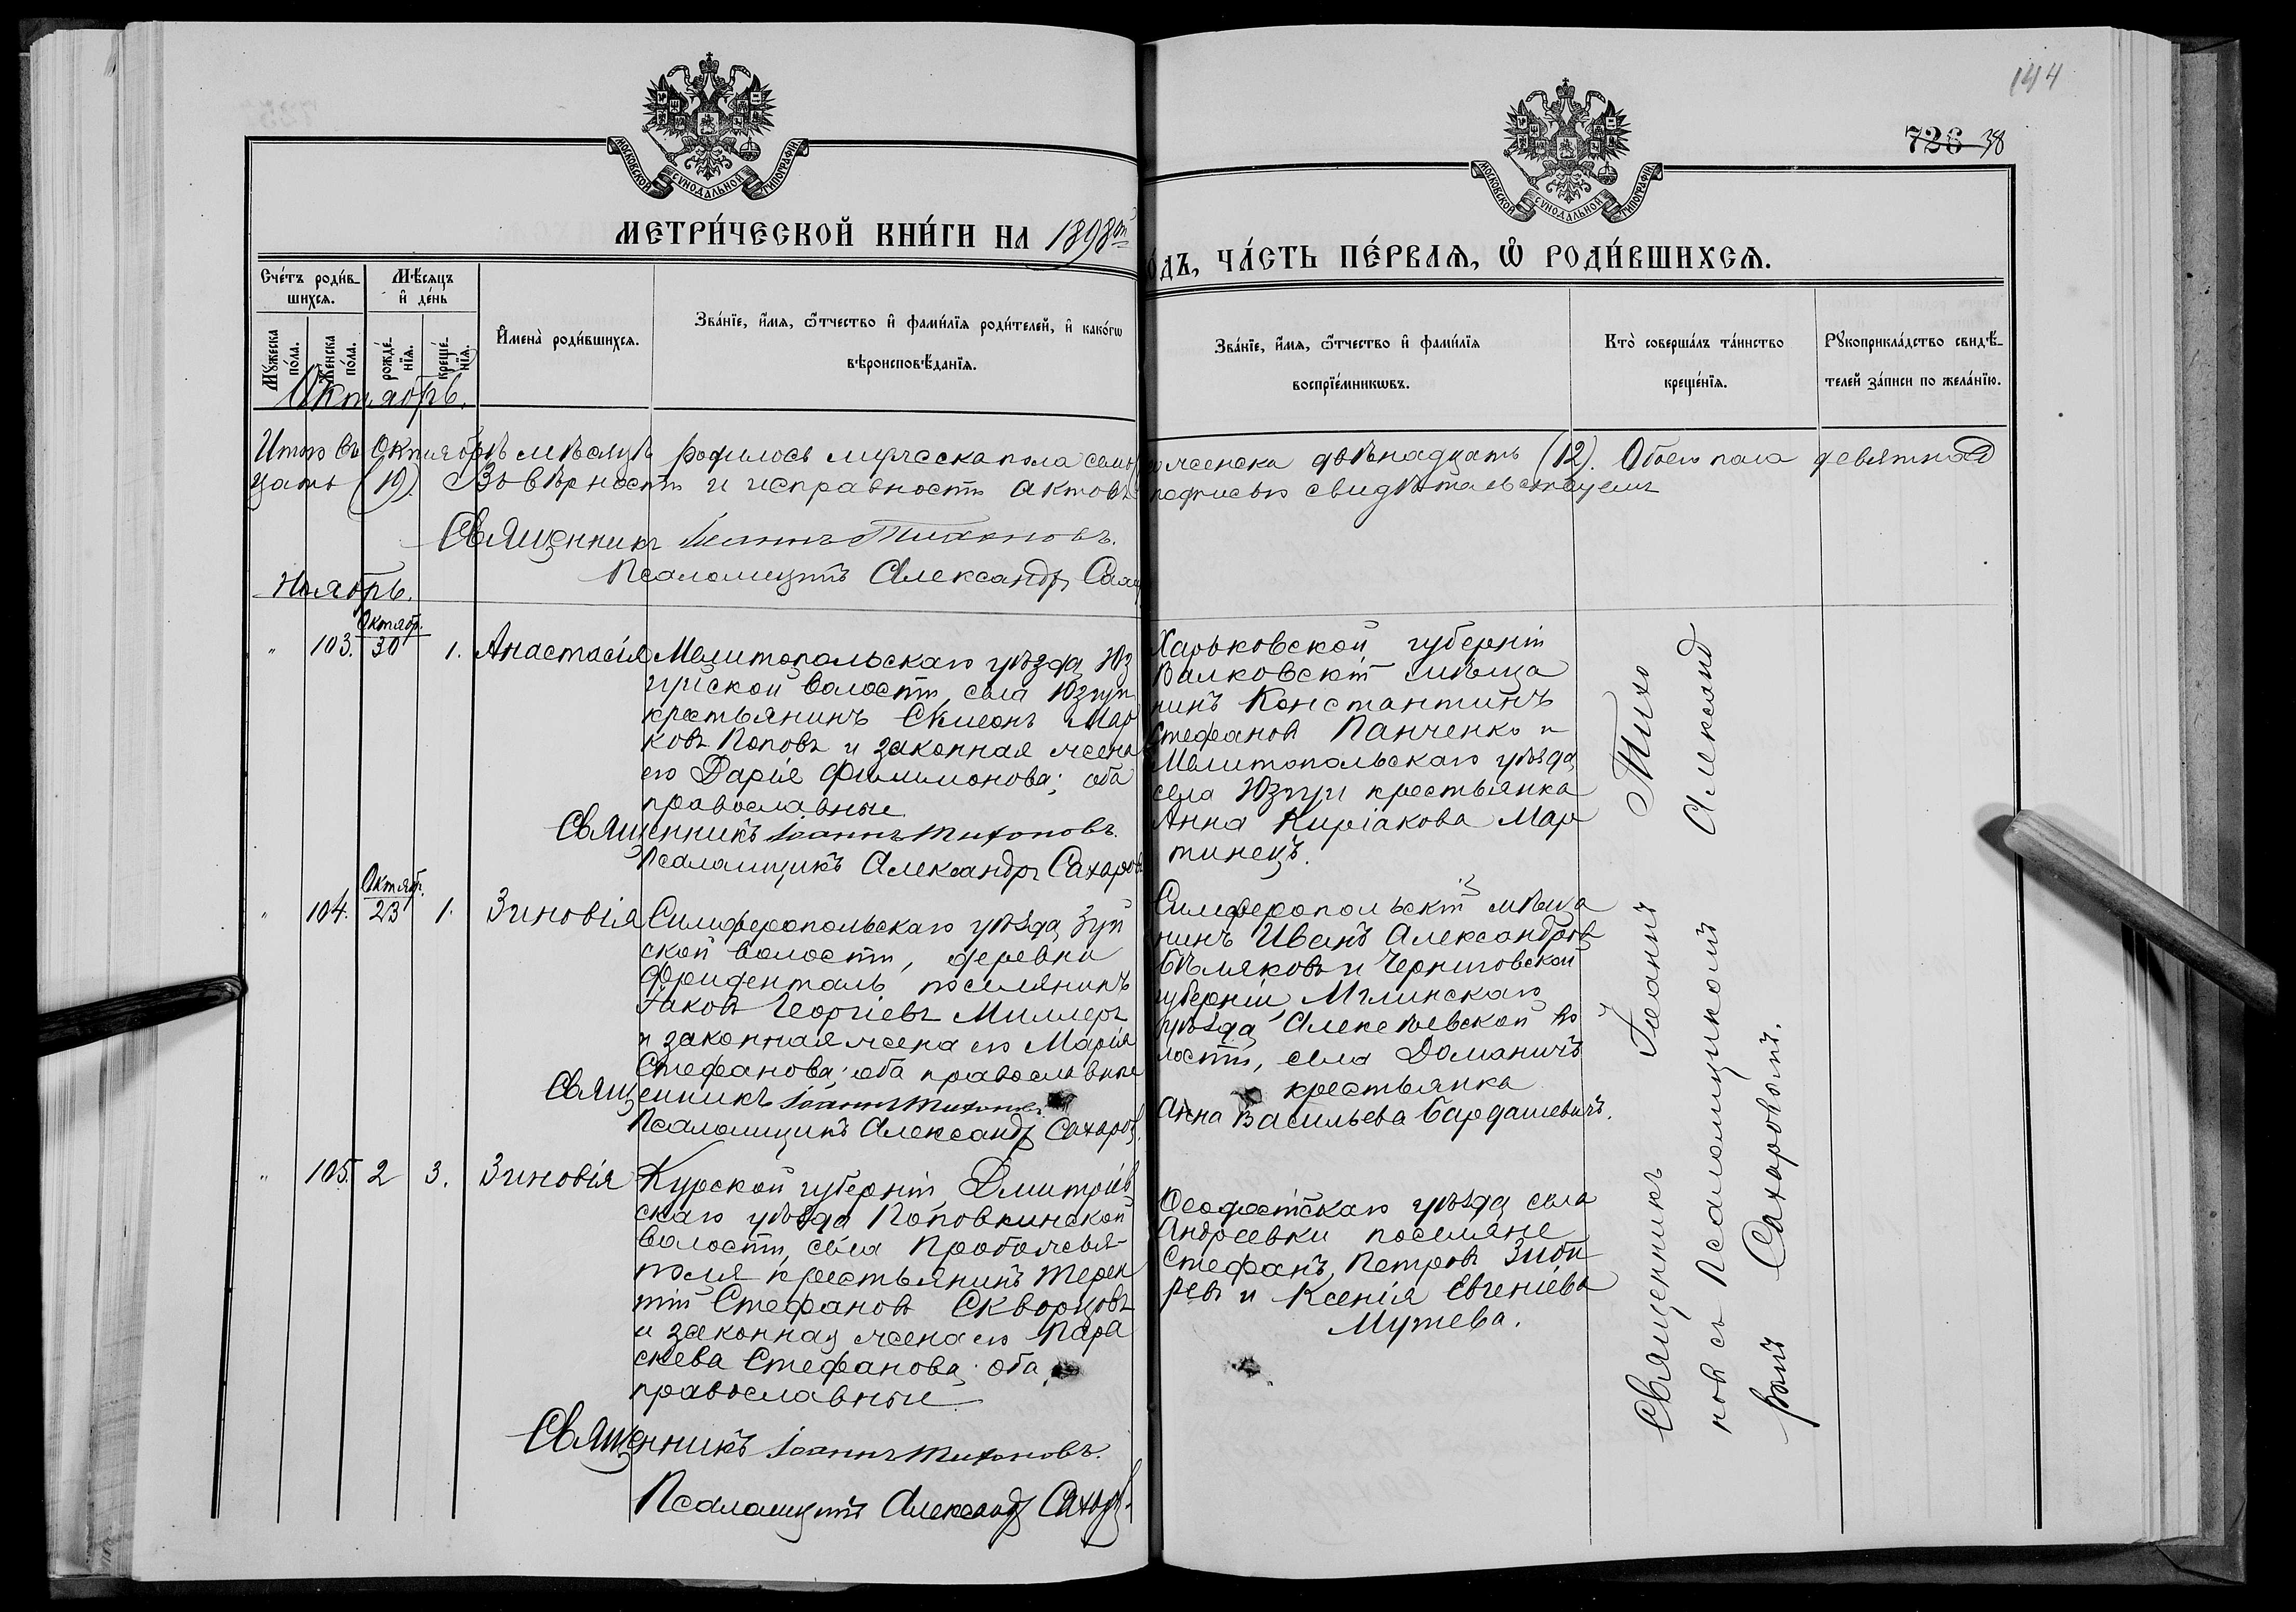 144
726 38
МОСКОВСКОЙ СУНОДАЛЬНОЙ ТИПОГРАФІИ
МОСКОВСКОЙ СУНОДАЛЬНОЙ ТИПОГРАФІИ
МЕТРИ́ЧЕСКОЙ КНИ́ГИ НА 1898й
О́ДЪ, ЧА́СТЬ ПЕ́РВАѦ, Ѽ РОДИ́ВШИХСѦ.
Сче́тъ роди́в-
шихсѧ.
Мꙋжеска по́ла.
Женска по́ла.
Мѣсѧцъ
и҆ де́нь
рожде́-
нїѧ.
креще́-
нїѧ.
И҆мена̀ роди́вшихсѧ.
Зва́нїе, и҆́мѧ, ѻ҆́тчество и҆ фами́лїѧ роди́телей, и҆ како́гѡ
вѣроисповѣ́данїѧ.
Зва́нїе, и҆́мѧ, ѻ҆́тчество и҆ фами́лїѧ
воспрїе́мникѡвъ.
Кто̀ соверша́лъ та́инство
креще́нїѧ.
Рꙋкоприкла́дство свидѣ́-
телей за́писи по жела́нїю.
Октябрь.
Итого въ Октябрѣ мѣсяцѣ родилось мужеска пола семь женска двѣнадцать (12). Обоего пола девятнад
цать (19). Въ вѣрности и исправности актовъ подписью свидѣтельствуемъ
Священникъ Іоаннъ Тихоновъ.
Псаломщикъ Александръ
Ноябрь.
" 103. Октябр. 30 1. Анастасія
Мелитопольскаго уѣзда Юз
гуйской волости, села Юзкуи
крестьянинъ Симеонъ Мар
ковъ Поповъ и законная жена
его Дарія Филимонова; оба
православные
Священникъ Іоаннъ Тихоновъ.
Псаломщикъ Александръ Сахаровъ
Харьковской губерніи
Валковскій мѣща
нинъ Константинъ
Стефановъ Панченко и
Мелитопольскаго уѣзда
села Юзкуи крестьянка
Анна Киріакова Мар
тинецъ.
" 104. Октябр. 23 1. Зиновія
Симферопольскаго уѣзда Зуй
ской волости, деревни
Фриденталь поселянинъ
Іаковъ Георгіевъ Миллеръ
и законная жена его Марія
Стефанова; оба православные
Священникъ Іоаннъ Тихоновъ
Псаломщикъ Александръ Сахаровъ.
Симферопольскій мѣща
нинъ Иванъ Александровъ
Бѣляковъ и Черниговской
губерніи Мглинскаго
уѣзда Алексѣевской во
лости, села Доманичъ
крестьянка
Анна Васильева Бардашевичъ.
" 105. 2 3. Зиновія
Курской губерніи Дмитріев
скаго уѣзда Поповкинской
волости, села
поля крестьянинъ Терен
тій Стефановъ Скворцовъ
и законная жена его Пара
скева Стефанова; оба
православные
Священникъ Іоаннъ Тихоновъ.
Псаломщикъ Александръ Сахаровъ.
Ѳеодосійскаго уѣзда села
Андреевки поселяне
Стефанъ Петровъ
ревъ и Ксенія Евгеніева
Мутева.
Священникъ Іоаннъ Тихо
новъ съ Псаломщикомъ Александ
ромъ Сахаровымъ.